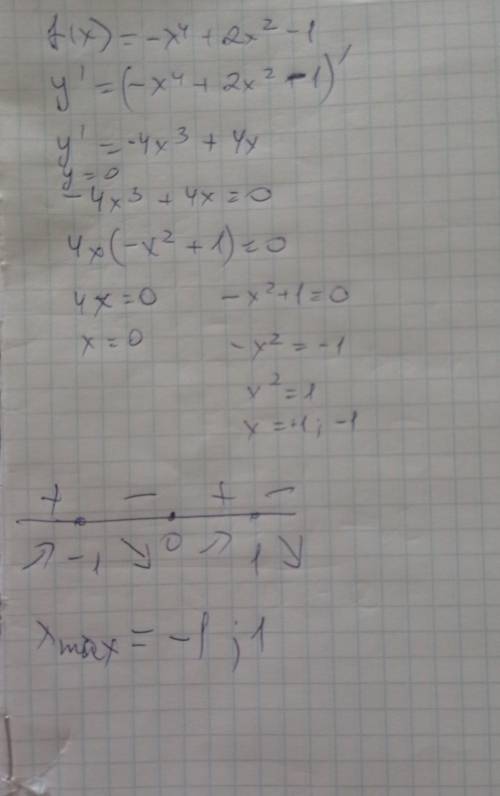 f(x) = -x⁴ + 2x² - 1
y' = (-x⁴ + 2x² - 1)'
y' = -4x³ + 4x
y = 0
-4x³ + 4x = 0
4x(-x² + 1) = 0
4x = 0 -x² + 1 = 0
x = 0 -x² = -1
x² = 1
x = +1; -1
+ - + -
↗ -1 ↘ 0 ↗ 1 ↘
xmax = -1; 1